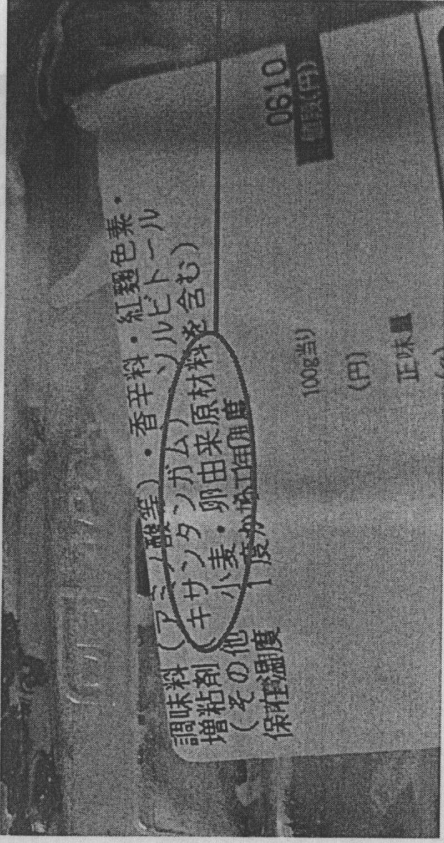 調味料(アミノ酸等)・香辛料・紅麹色素・
増粘剤(キサンタンガム)ソルビトール
(その他 小麦・卵由来原材料を含む)
保存温度
0610
100g当り
(円)
正味量
(g)